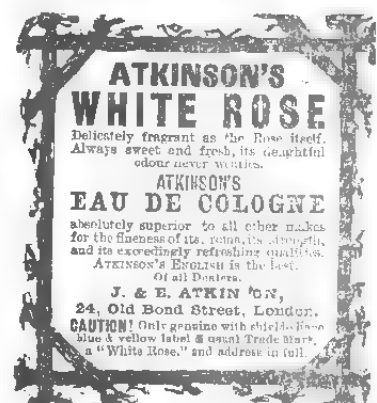 ATKINSON'S
WHITE ROSE
Delicately fragrant as the Rose itself.
Always sweet and fresh, its delightful
odour never
ATKINSON'S
EAU DE COLOGNE
absolutely superior to all other makes
for the fineness of its its strength,
and its exceedingly refreshing qualities.
ATKINSON'S ENGLISH is the best.
Of all Dealers.
J. & E. ATKINSON,
24, Old Bond Street, London.
CAUTION! Only genuine with shield-shape
blue & yellow label & usual Trade Mark,
a "White Rose," and address in full.